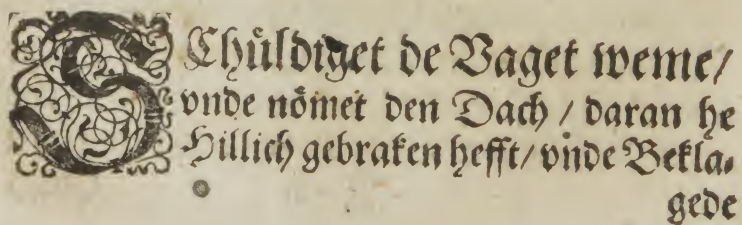 SChůldiget de Vaget weme/
vnde nömet den Dach / daran he
Hillich gebraken hefft/ vnde Bekla-
gede